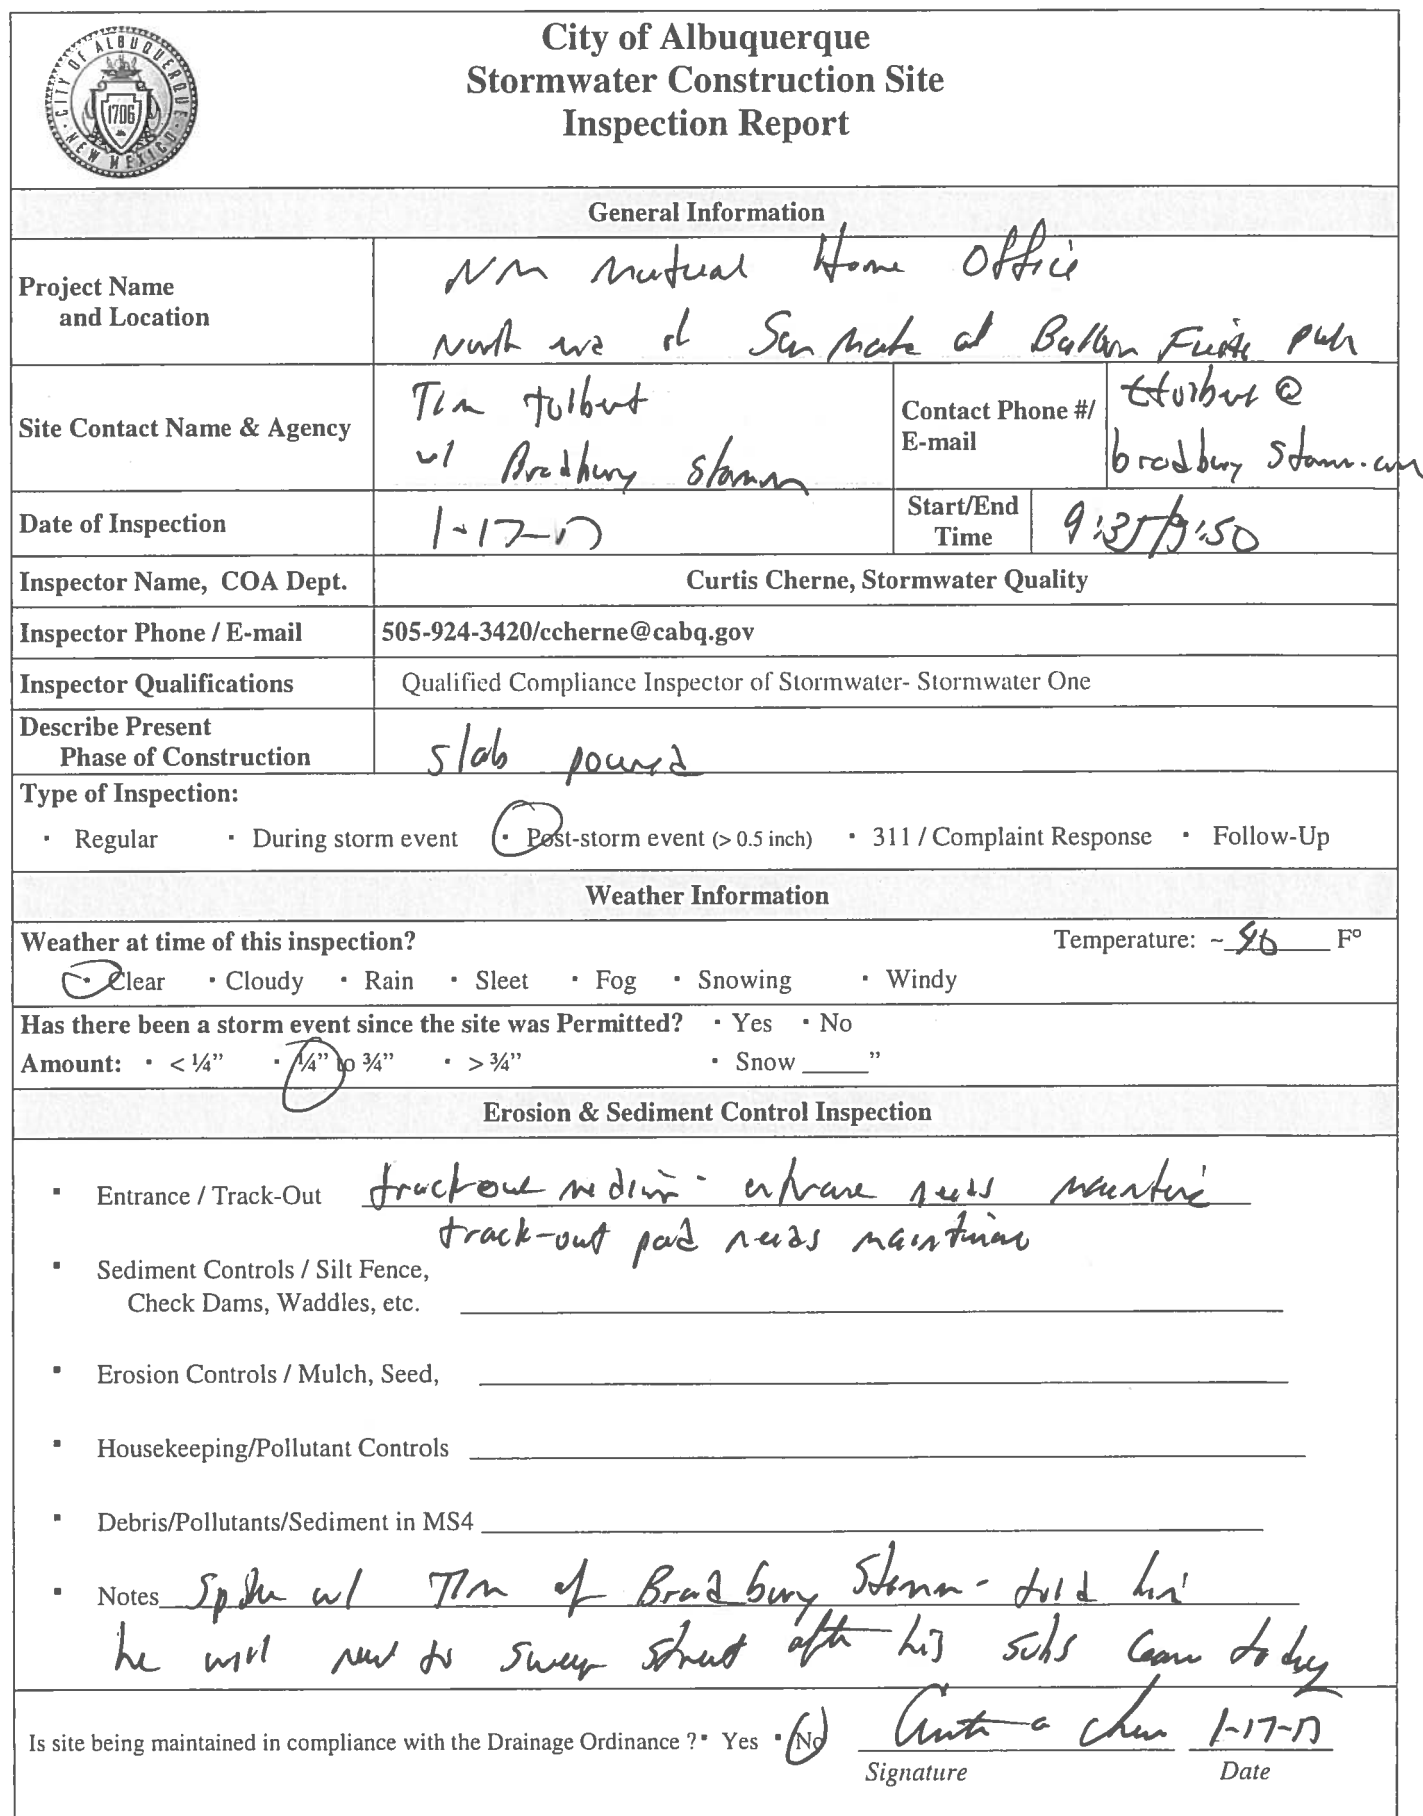 CITY OF ALBUQUERQUE
NEW MEXICO
1706
City of Albuquerque
Stormwater Construction Site
Inspection Report
General Information
Project Name
and Location
NM Mutual Home Office
North at San Mateo at Balloon Fiesta
Site Contact Name & Agency
Tim
w/ Bradbury Stamm
Contact Phone #/
E-mail
@
bradbury stamm.com
Date of Inspection
1-17-17
Start/End
Time
9:35/9:50
Inspector Name, COA Dept.
Curtis Cherne, Stormwater Quality
Inspector Phone / E-mail
505-924-3420/ccherne@cabq.gov
Inspector Qualifications
Qualified Compliance Inspector of Stormwater- Stormwater One
Describe Present
Phase of Construction
slab poured
Type of Inspection:
· Regular · During storm event · Post-storm event (> 0.5 inch) · 311 / Complaint Response · Follow-Up
Weather Information
Weather at time of this inspection?
Temperature: ~ F°
· Clear · Cloudy · Rain · Sleet · Fog · Snowing · Windy
Has there been a storm event since the site was Permitted? · Yes · No
Amount: · < ¼” · ¼” to ¾” · > ¾” · Snow _____”
Erosion & Sediment Control Inspection
▪ Entrance / Track-Out
trackout medium - entrance needs
track-out pad needs
▪ Sediment Controls / Silt Fence,
Check Dams, Waddles, etc.
▪ Erosion Controls / Mulch, Seed,
▪ Housekeeping/Pollutant Controls
▪ Debris/Pollutants/Sediment in MS4
▪ Notes Spoke w/ Tim of Bradbury Stamm - told him
he will need to sweep street after his subs today
Is site being maintained in compliance with the Drainage Ordinance ?· Yes · No
1-17-17
Signature
Date